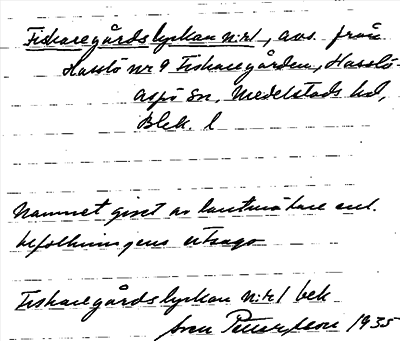 Fiskaregårdslyckan n:r 1, avs. från
Hasslö nr 9 Fiskaregården, Hasslö-
Aspö sn, Medelstads hd,
Blek. l
Namnet givet av lantmätare enl.
befolkningens utsago
Fiskaregårdslyckan n:r 1 bek
Sven Pettersson 1935